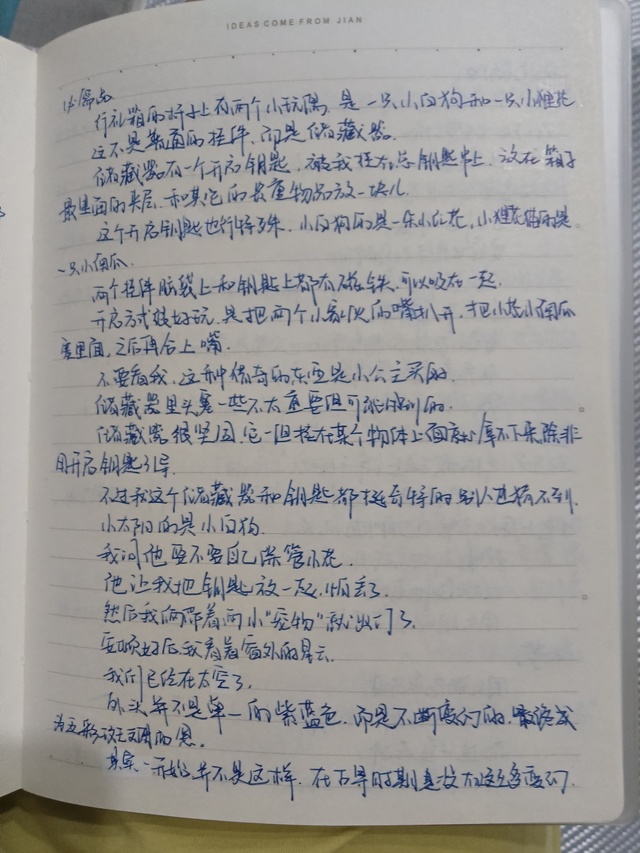 IDEAS COME FROM JIAN
必需品
行礼箱的杆子上有两个小玩偶,是一只小白狗和一只小狸花
这不是普通的挂件,而是储藏器.
储藏器有一个开启钥匙,被我挂在总钥匙串上,放在箱子
最里面的夹层,和其它的贵重物品放一块儿
这个开启钥匙也很特殊,小白狗的是一朵小红花,小狸花猫的是
一只小南瓜.
两个挂件脑袋上和钥匙上都有磁铁,可以吸在一起.
开启方式挺好玩,是把两个小家伙的嘴扒开,把小花小南瓜
塞里面,之后再合上嘴.
不要看我,这种传奇的东西是小公主买的.
储藏器里头塞一些不太重要但可能用到的.
储藏器很坚固,它一旦挂在某个物体上面就拿不下来除非
用开启钥匙引导.
不过我这个储藏器和钥匙都挺奇特的别人也猜不到.
小太阳的是小白狗.
我问他要不要自己保管小花.
他让我把钥匙放一起,怕丢了.
然后我俩带着两小"宠物"就出门了.
安顿好后,我看着窗外的星云.
我们已经在太空了.
外头并不是单一的紫蓝色,而是不断变幻的,最终成
为五彩斑斓的黑.
其实一开始并不是这样,在古早时期是没有这么多变幻.